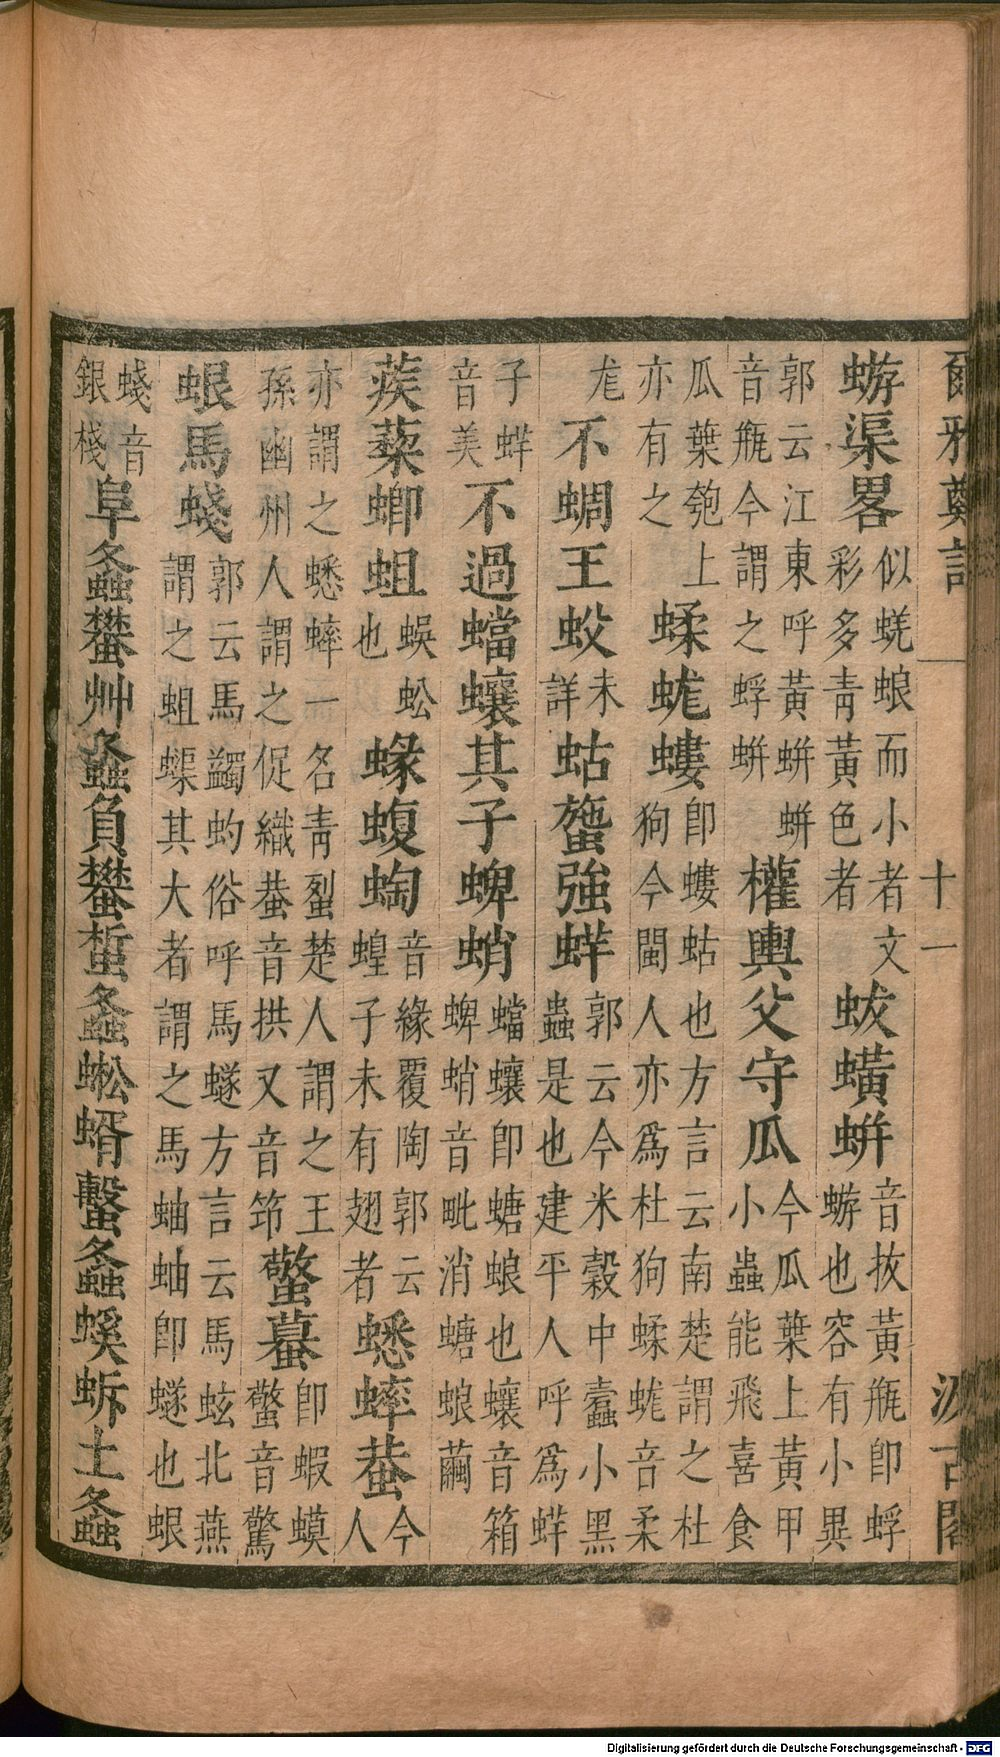 爾雅鄭註 十一 汲古閣
蝣渠畧似蜣蜋而小者文彩多青黃色者蛂蟥蛢音抜黃瓶即蜉蝣也容有小異
郭云江東呼黃蛢蛢音瓶今謂之蜉蛢權輿父守瓜今瓜葉上黃甲小蟲能飛喜食
瓜葉匏上亦有之蝚蛖螻即螻蛄也方言云南楚謂之杜狗今閩人亦爲杜狗蝚蛖音柔
尨不蜩王蚥未詳蛄䗐強蛘郭云今米穀中蠹小黑蟲是也建平人呼爲蛘
子蛘音美不過蟷蠰其子蜱蛸蟷蠰即螗蜋也蠰音箱蜱蛸音毗消螗蜋繭
蒺蔾蝍蛆蜈蚣也蝝蝮蜪音緣覆陶郭云蝗子未有翅者蟋蟀蛬今人
亦謂之蟋蟀一名青䖽楚人謂之王孫幽州人謂之促織蛬音拱又音筇蟼蟇即蝦蟆蟼音驚
蛝馬䗃郭云馬蠲虳俗呼馬䗹方言云馬蚿北燕謂之蛆蟝其大者謂之馬蚰蚰即䗹也蛝
䗃音銀棧阜螽蠜艸螽負蠜蜤螽蜙蝑蟿螽螇蚸土螽
Digitalisierung gefördert durch die Deutsche Forschungsgemeinschaft - DFG